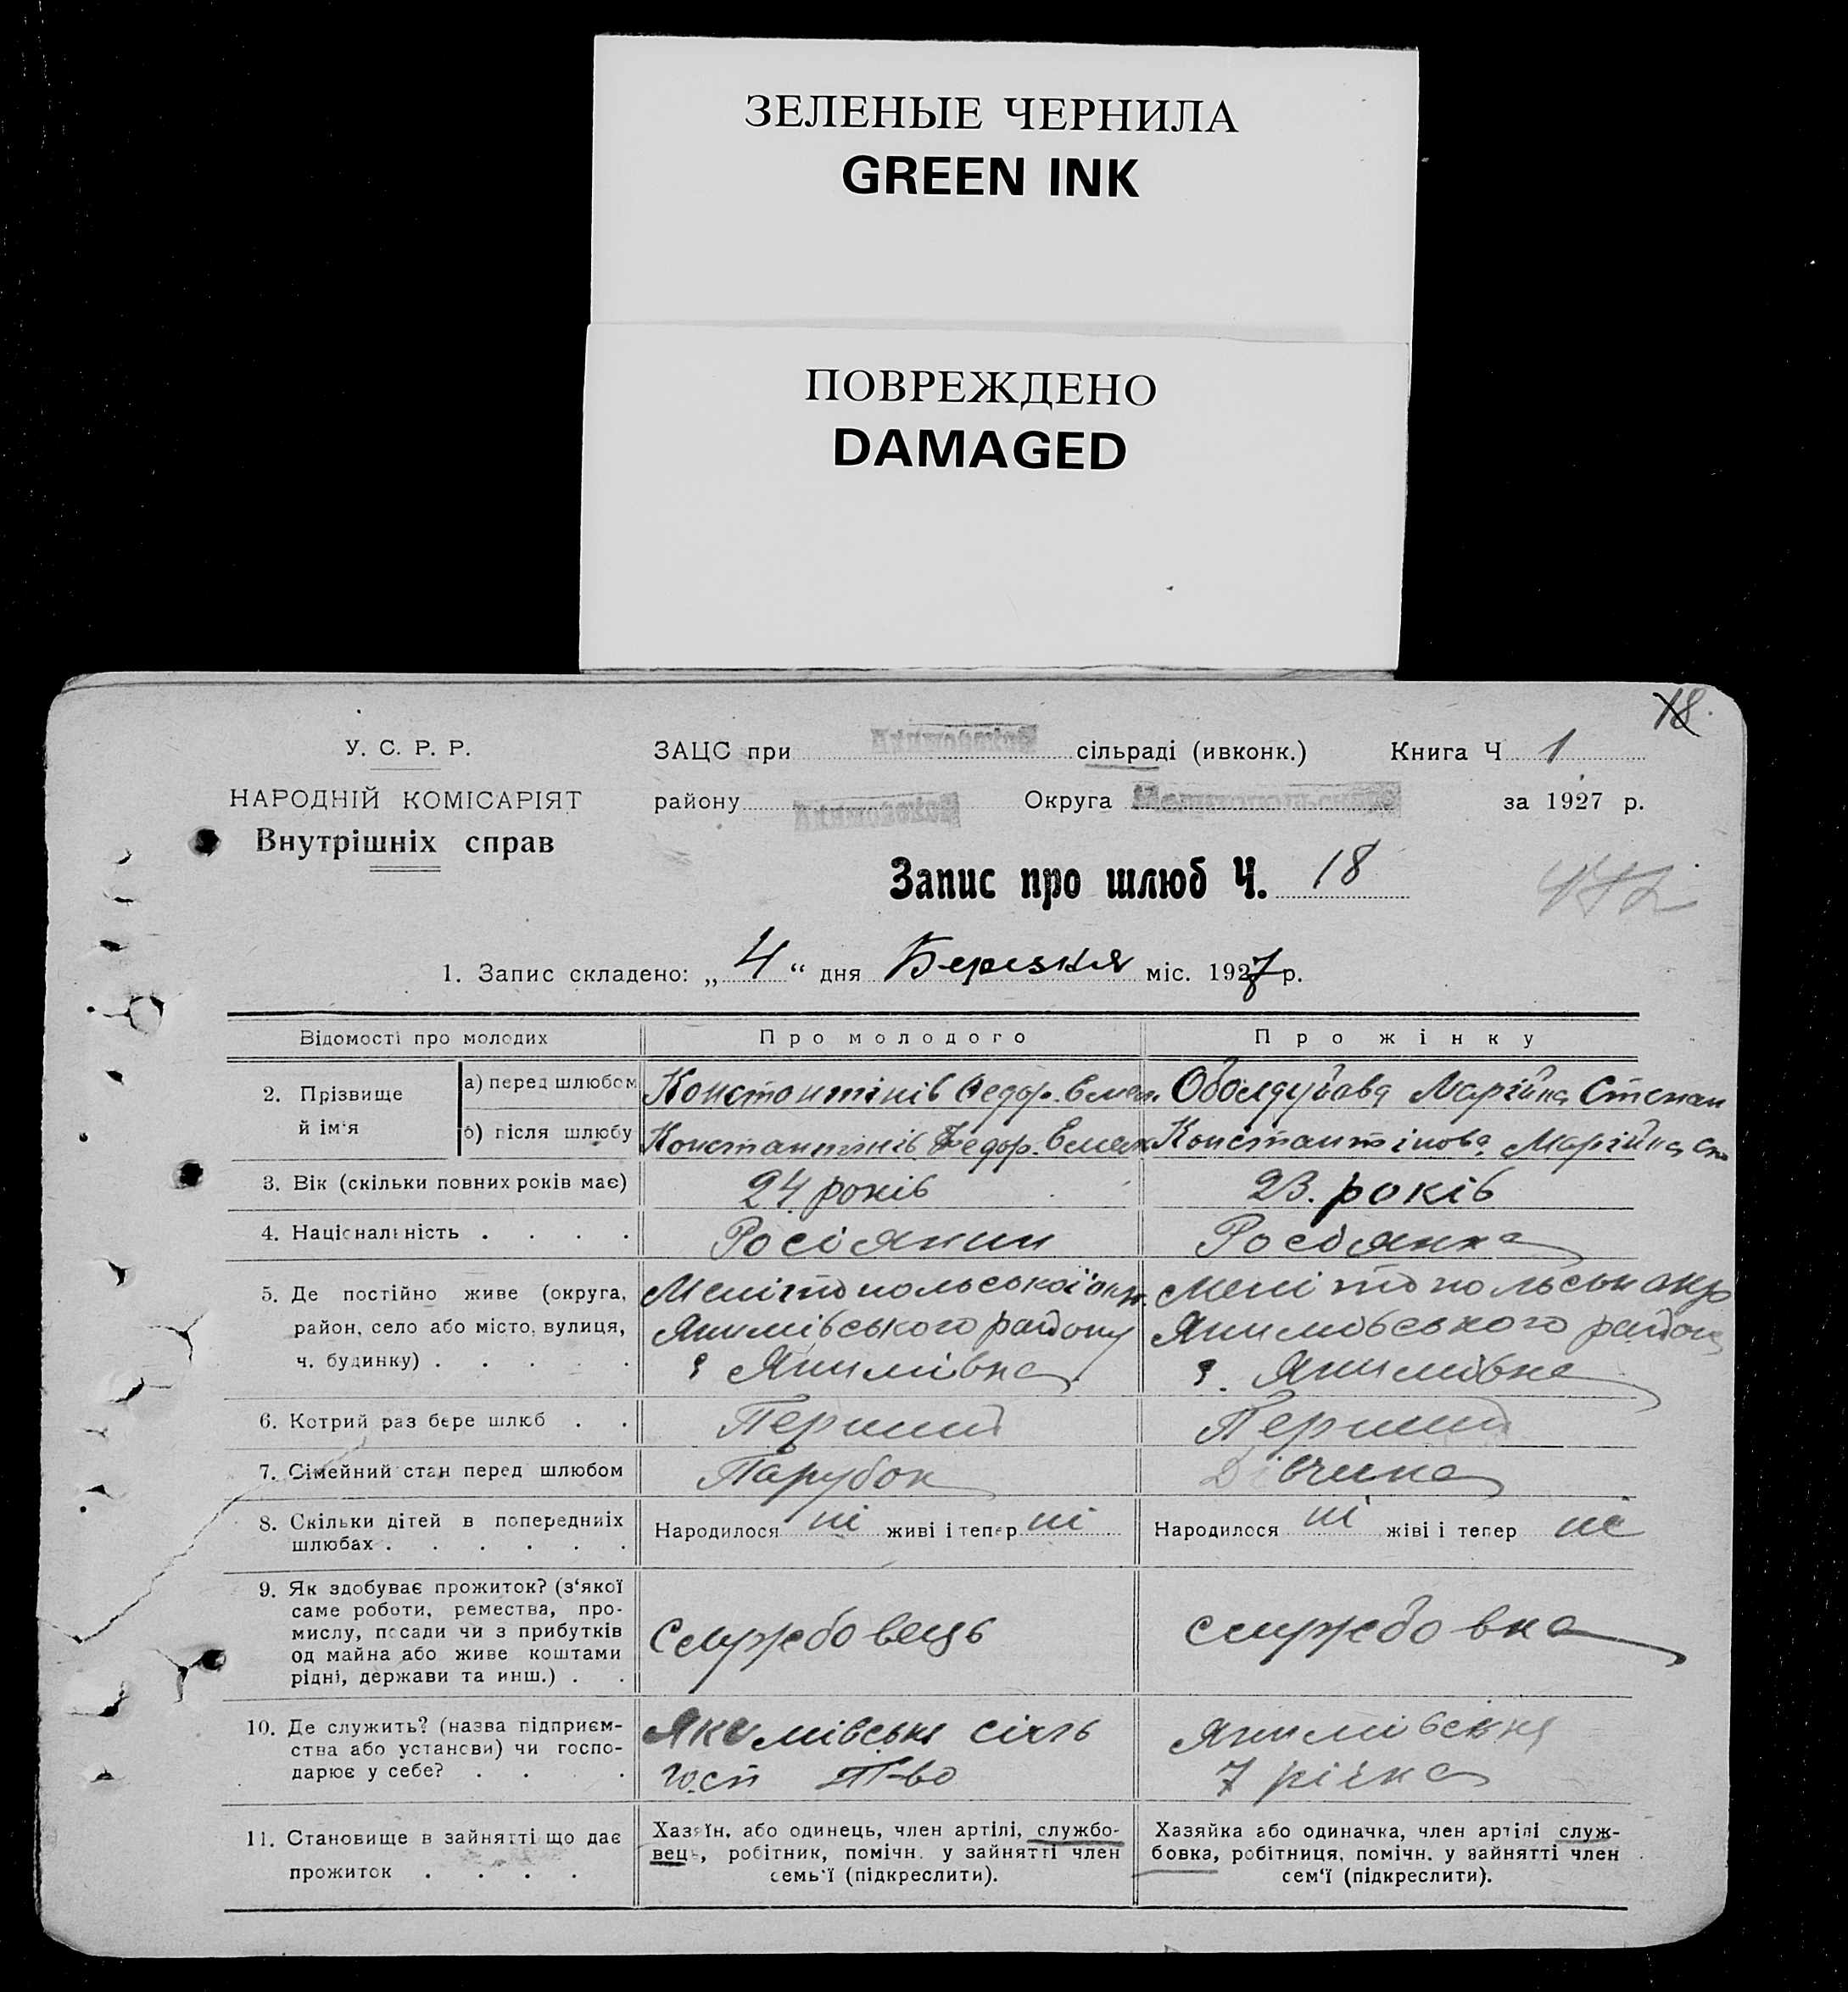 ЗЕЛЕНЫЕ ЧЕРНИЛА
GREEN INK
ПОВРЕЖДЕНО
DAMAGED
18.
У. С. Р. Р.
НАРОДНІЙ КОМІСАРІЯТ
Внутрішніх справ
ЗАЦС при сільраді (ивконк.) Книга Ч 1
району Округа за 1927 р.
Запис про шлюб Ч. 18
1. Запис складено: „4“ дня Березня міс. 1927 р.
Відомості про молодих Про молодого Про жінку
2. Прізвище й ім'я
а) перед шлюбом Константінів Федор. Емел. Оболдуйова Марійка Степан
б) після шлюбу Константінів Федор. Емел Константінова Марійка Ст
3. Вік (скільки повних років має) 24 років 23. років
4. Національність . . . . Росіянин Росіянка
5. Де постійно живе (округа, Мелітопольської окр. Мелітопольськ окр
район, село або місто, вулиця, Якимівського району Якимовського району
ч. будинку) . . . . . с Якимівка с. Якимівка
6. Котрий раз бере шлюб . . Перший Перший
7. Сімейний стан перед шлюбом Парубок Дівчина
8. Скільки дітей в попередниіх Народилося ні живі і тепер ні Народилося ні жіві і тепер ні
шлюбах . . . . . .
9. Як здобуває прожиток? (з'якої
саме роботи, ремества, про-
мислу, посади чи з прибутків Службовець службовка
од майна або живе коштами
рідні, держави та инш.) . .
10. Де служить? (назва підприєм- Якимівське сіль Якимівська
ства або установи) чи госпо- госп Т-во 7 річка
дарює у себе? . . . .
11. Становище в зайнятті що дає Хазяїн, або одинець, член артілі, службо- Хазяйка або одиначка, член артілі служ-
прожиток . . . . вець, робітник, помічн. у зайнятті член бовка, робітниця, помічн. у зайнятті член
семь'ї (підкреслити). сем'ї (підкреслити).